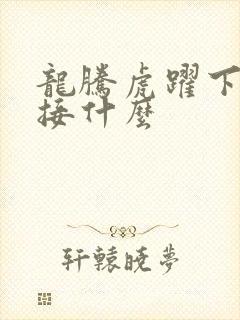 龍騰虎躍下
接什麼
轩辕晓夢